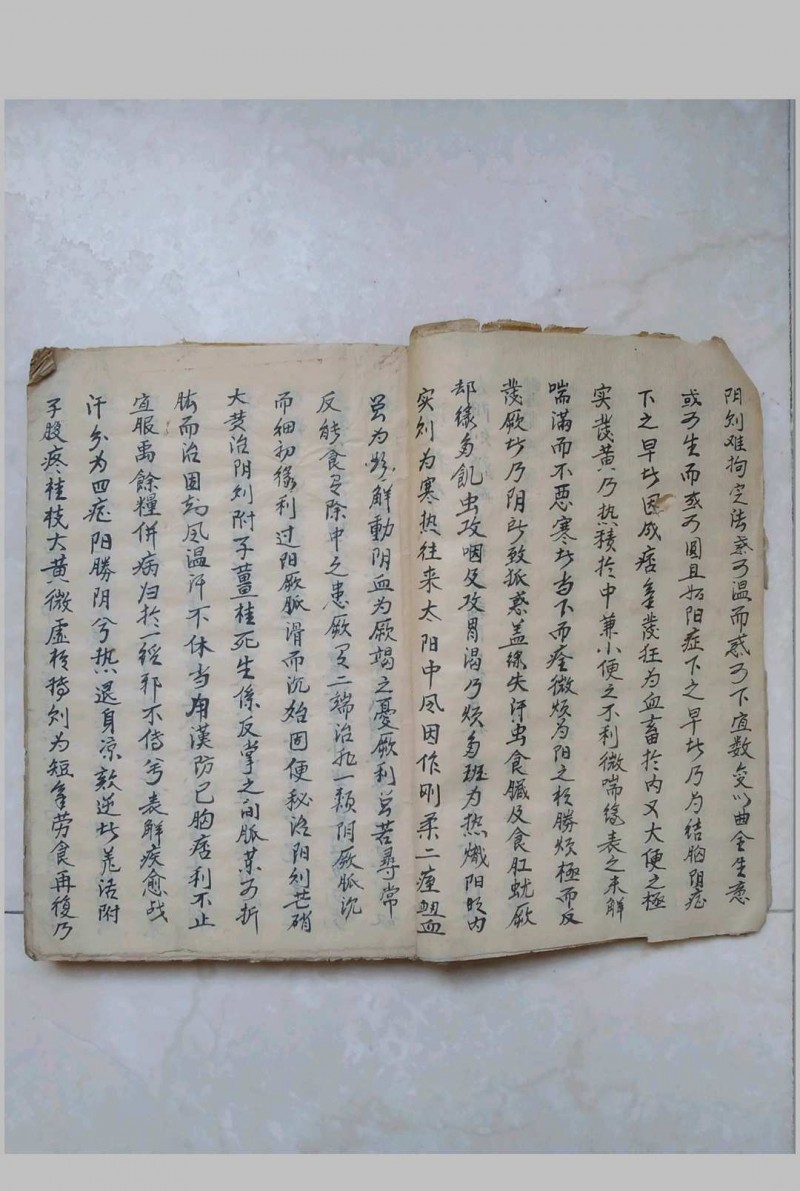 阴则难拘定法或可温而或可下宜数変以曲全生意
或可生而或可圓且如阳症下之早者乃为结胸阴症
下之早者因成痞气發狂为血畜於内又大便之極
实發黄乃热積於中兼小便之不利微喘缘表之未解
喘滿而不恶寒者当下而痊微烦为阳之相勝烦極而反
發厥者乃阴所致狐惑盖缘失汗虫食臓及食肛蚘厥
却缘多飢虫攻咽及攻胃渴乃烦多斑为热熾阳明内
实则为寒热往来太阳中风因作刚柔二痓衄血
虽为欲解動阴血为厥竭之憂厥利曾若尋常
反能食是除中之患厥有二端治非一類阴厥脈沉
而细初缘利过阳厥脈滑而沉始因便秘治阳则芒硝
大黄治阴则附子薑桂死生係反掌之间脈薬可折
肱而治因知风温汗不休当用漢防己胸痞利不止
宜服禹餘糧併病归於一經邪不传兮表解疾愈战
汗分为四症阳勝阴兮热退身凉欬逆者羌活附
子腹疼桂枝大黄微虚相搏则为短氣劳食再復乃